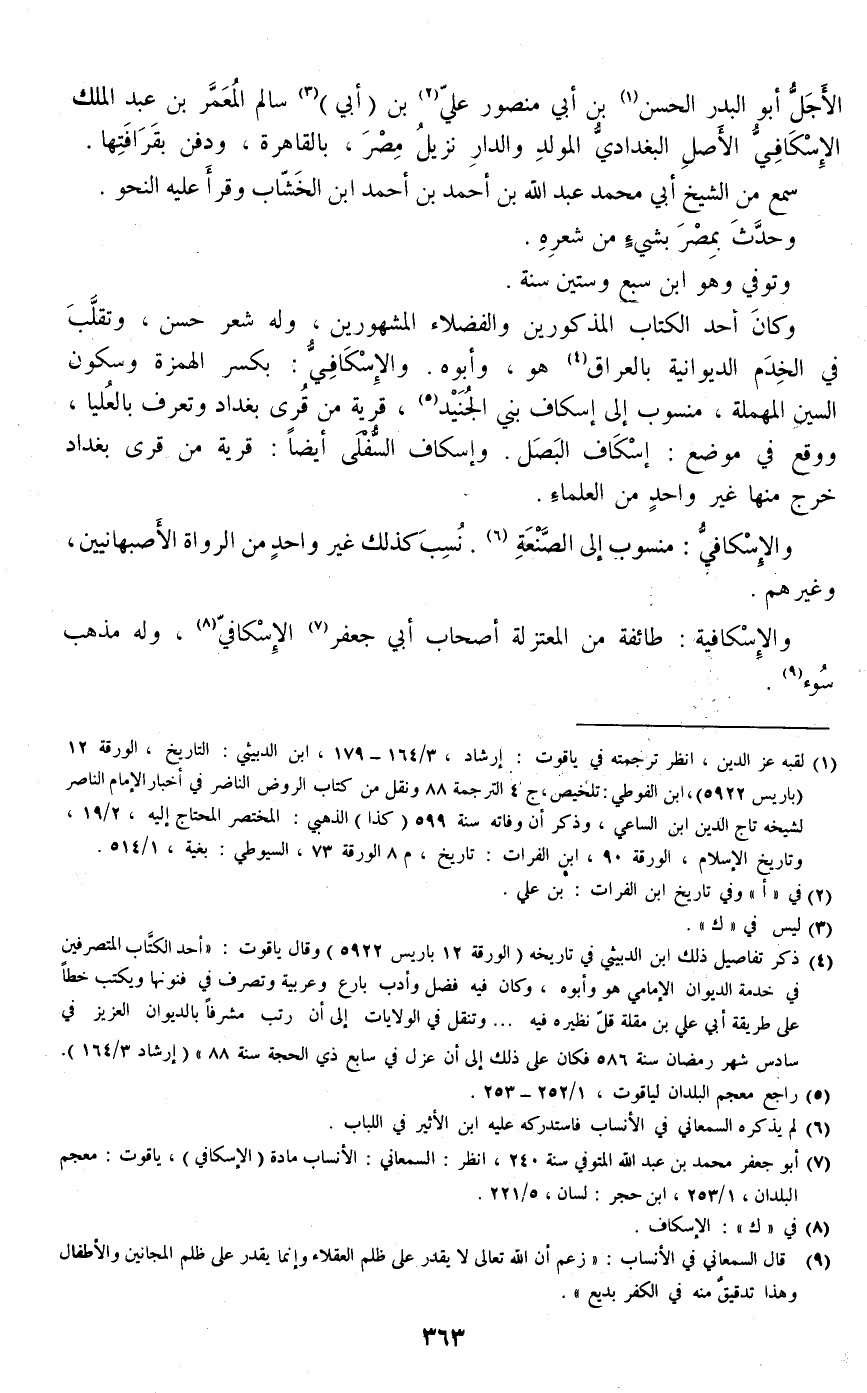 الأَجَلُّ أبو البدر الحسن(١) بن أبي منصور عليّ(٢) بن ( أبي )(٣) سالم المُعَمَّر بن عبد الملك
الإِسْكَافِيُّ الأَصلِ البغداديُّ المولدِ والدارِ نزيلُ مِصْرَ ، بالقاهرة ، ودفن بقَرَافَتِها .
سمع من الشيخ أبي محمد عبد الله بن أحمد بن أحمد ابن الخَشّاب وقرأ عليه النحو .
وحدَّثَ بِمِصْرَ بشيءٍ من شعرِهِ .
وتوفي وهو ابن سبع وستين سنة .
وكانَ أحد الكتاب المذكورين والفضلاء المشهورين ، وله شعر حسن ، وتقلَّبَ
في الخِدَم الديوانية بالعراق(٤) هو ، وأبوه . والإِسْكَافِيُّ : بكسر الهمزة وسكون
السينِ المهملة ، منسوب إلى إسكاف بني الجُنَيْد(٥) ، قرية من قُرى بغداد وتعرف بالعُليا ،
ووقع في موضع : إسْكَاف البَصَل . وإسكاف السُّفْلَى أيضاً : قرية من قرى بغداد
خرج منها غير واحدٍ من العلماءِ .
والإِسْكافيُّ : منسوب إلى الصَّنْعَةِ (٦) . نُسِبَ كذلك غير واحدٍ من الرواة الأَصبهانيين ،
وغيرهم .
والإِسْكافية : طائفة من المعتزلة أصحاب أبي جعفر(٧) الإِسْكافيّ(٨) ، وله مذهب
سُوء(٩) .
(١) لقبه عز الدين ، انظر ترجمته في ياقوت : إرشاد ، ١٦٤/٣ – ١٧٩ ، ابن الدبيثي : التاريخ ، الورقة ١٢
(باريس ٥٩٢٢)، ابن الفوطي : تلخيص، ج ٤ الترجمة ٨٨ ونقل من كتاب الروض الناضر في أخبار الإمام الناصر
لشيخه تاج الدين ابن الساعي ، وذكر أن وفاته سنة ٥٩٩ ( كذا ) الذهبي : المختصر المحتاج إليه ، ١٩/٢ ،
وتاريخ الإسلام ، الورقة ٩٠ ، ابن الفرات : تاريخ ، م ٨ الورقة ٧٣ ، السيوطي : بغية ، ٥١٤/١ .
(٢) في « أ » وفي تاريخ ابن الفرات : بن علي .
(٣) ليس في « ك » .
(٤) ذكر تفاصيل ذلك ابن الدبيثي في تاريخه ( الورقة ١٢ باريس ٥٩٢٢ ) وقال ياقوت : «أحد الكتَّاب المتصرفين
في خدمة الديوان الإمامي هو وأبوه ، وكان فيه فضل وأدب بارع وعربية وتصرف في فنونها ويكتب خطاً
على طريقة أبي علي بن مقلة قلّ نظيره فيه ... وتنقل في الولايات إلى أن رتب مشرفاً بالديوان العزيز في
سادس شهر رمضان سنة ٥٨٦ فكان على ذلك إلى أن عزل في سابع ذي الحجة سنة ٨٨ » ( إرشاد ١٦٤/٣ ).
(٥) راجع معجم البلدان لياقوت ، ٢٥٢/١ – ٢٥٣ .
(٦) لم يذكره السمعاني في الأنساب فاستدركه عليه ابن الأثير في اللباب .
(٧) أبو جعفر محمد بن عبد الله المتوفي سنة ٢٤٠ ، انظر : السمعاني : الأنساب مادة ( الإسكافي ) ، ياقوت : معجم
البلدان ، ٢٥٣/١ ، ابن حجر : لسان ، ٢٢١/٥ .
(٨) في « ك » : الإسكاف .
(٩) قال السمعاني في الأنساب : « زعم أن الله تعالى لا يقدر على ظلم العقلاء وإنما يقدر على ظلم المجانين والأطفال
وهذا تدقيقٌ منه في الكفر بديع » .
٣٦٣